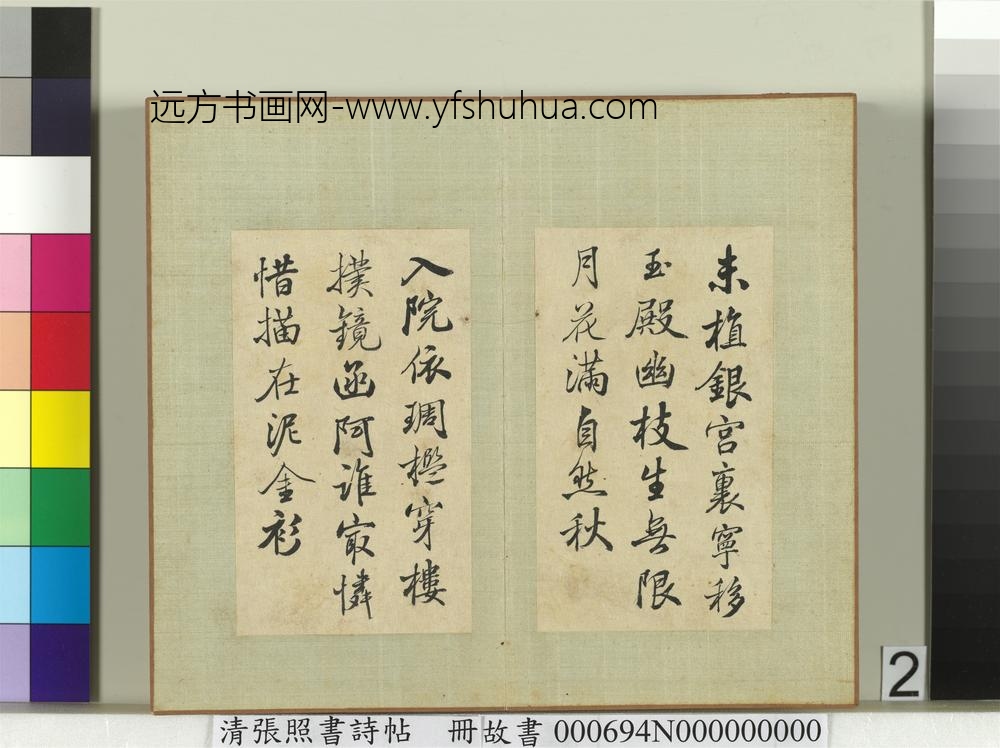 远方书画网-www.yfshuhua.com
未植銀宮裏寧移
玉殿幽枝生無限
月花滿自然秋
入院依琱檻穿樓
撲鏡函阿誰寂憐
惜描在泥金衫
2
清張照書詩帖 冊故書 000694N000000000